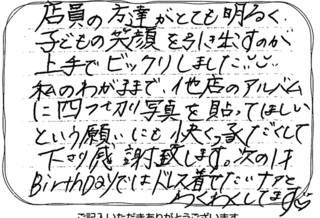 店員の方達がとても明るく、
子どもの笑顔を引き出すのが
上手でビックリしました
私のわがまま、他店のアルバム
に四つ切り写真を貼ってほしい
という願いにも快く承だくして
下さり感謝致します。次の1才
BirthDayではドレス着せたいナァと
わくわくしてます
ご記入いただきありがとうございます